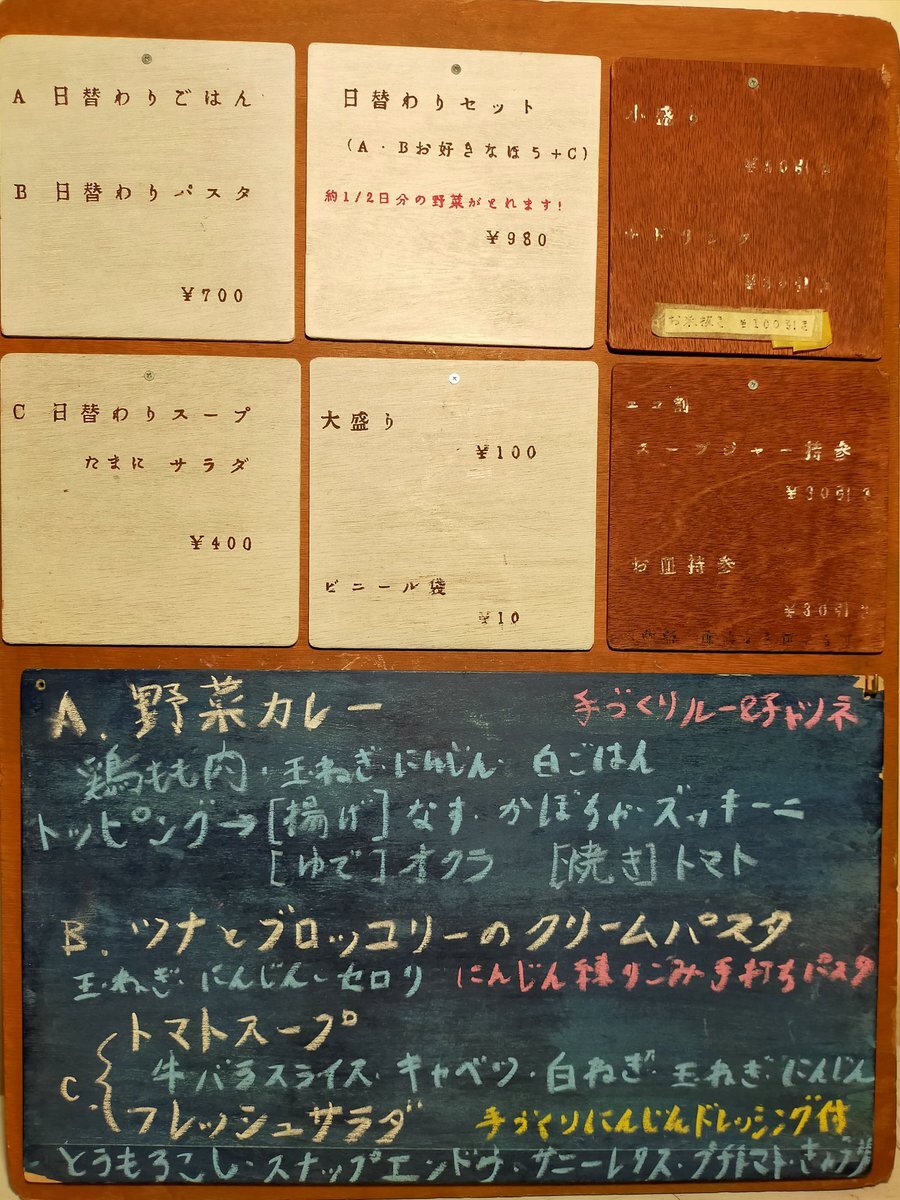 A 日替わりごはん
B 日替わりパスタ
¥700
日替わりセット
(A・Bお好きなほう+C)
約1/2日分の野菜がとれます!
¥980
小盛り
¥50引き
お米抜き ¥100引き
C 日替わりスープ
たまに サラダ
¥400
大盛り
¥100
ビニール袋
¥10
エコ割
スープジャー持参
¥30引き
お皿持参
¥30引き
A. 野菜カレー
手づくりルー&チャツネ
鶏もも肉・玉ねぎ・にんじん・白ごはん
トッピング→[揚げ]なす・かぼちゃ・ズッキーニ
[ゆで]オクラ [焼き]トマト
B. ツナとブロッコリーのクリームパスタ
玉ねぎ・にんじん・セロリ にんじん練りこみ手打ちパスタ
C. トマトスープ
牛バラスライス・キャベツ・白ねぎ・玉ねぎ・にんじん
フレッシュサラダ 手づくりにんじんドレッシング付
とうもろこし・スナップエンドウ・サニーレタス・プチトマト・きゅうり